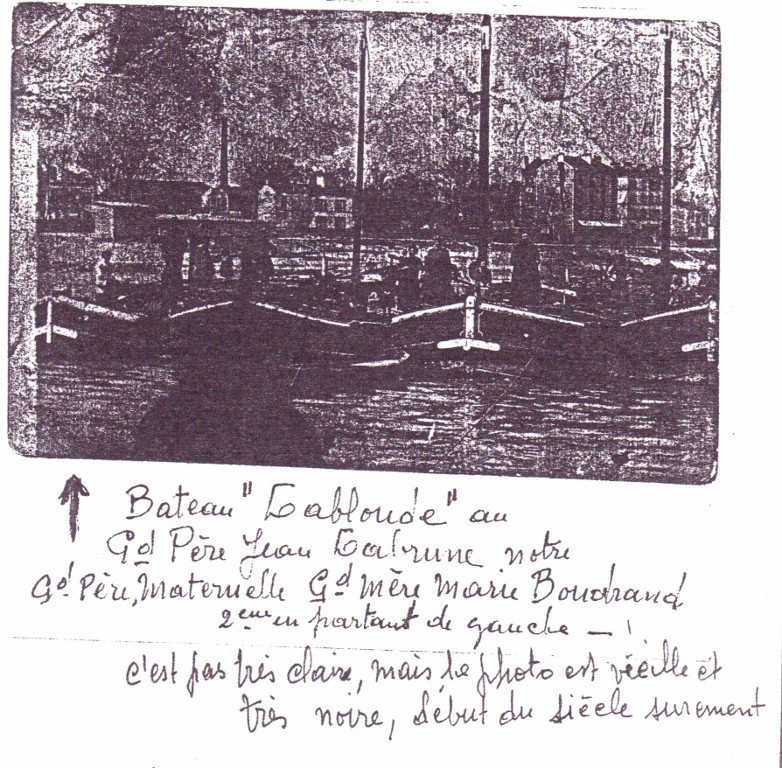 Bateau "Lablonde" au
Gd Père Jean Labrune notre
Gd Père, Maternelle Gd Mère Marie Boudrand
2ème en partant de gauche — !
c'est pas très claire, mais la photo est viéille et
très noire, début du siécle surement